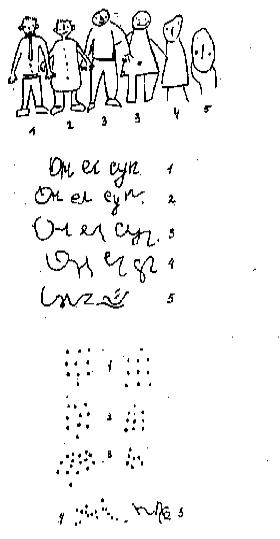 1 2 3 3 4 5
Он ел суп 1
Он ел суп. 2
Он ел суп. 3
4
5
1
2
3
4 5